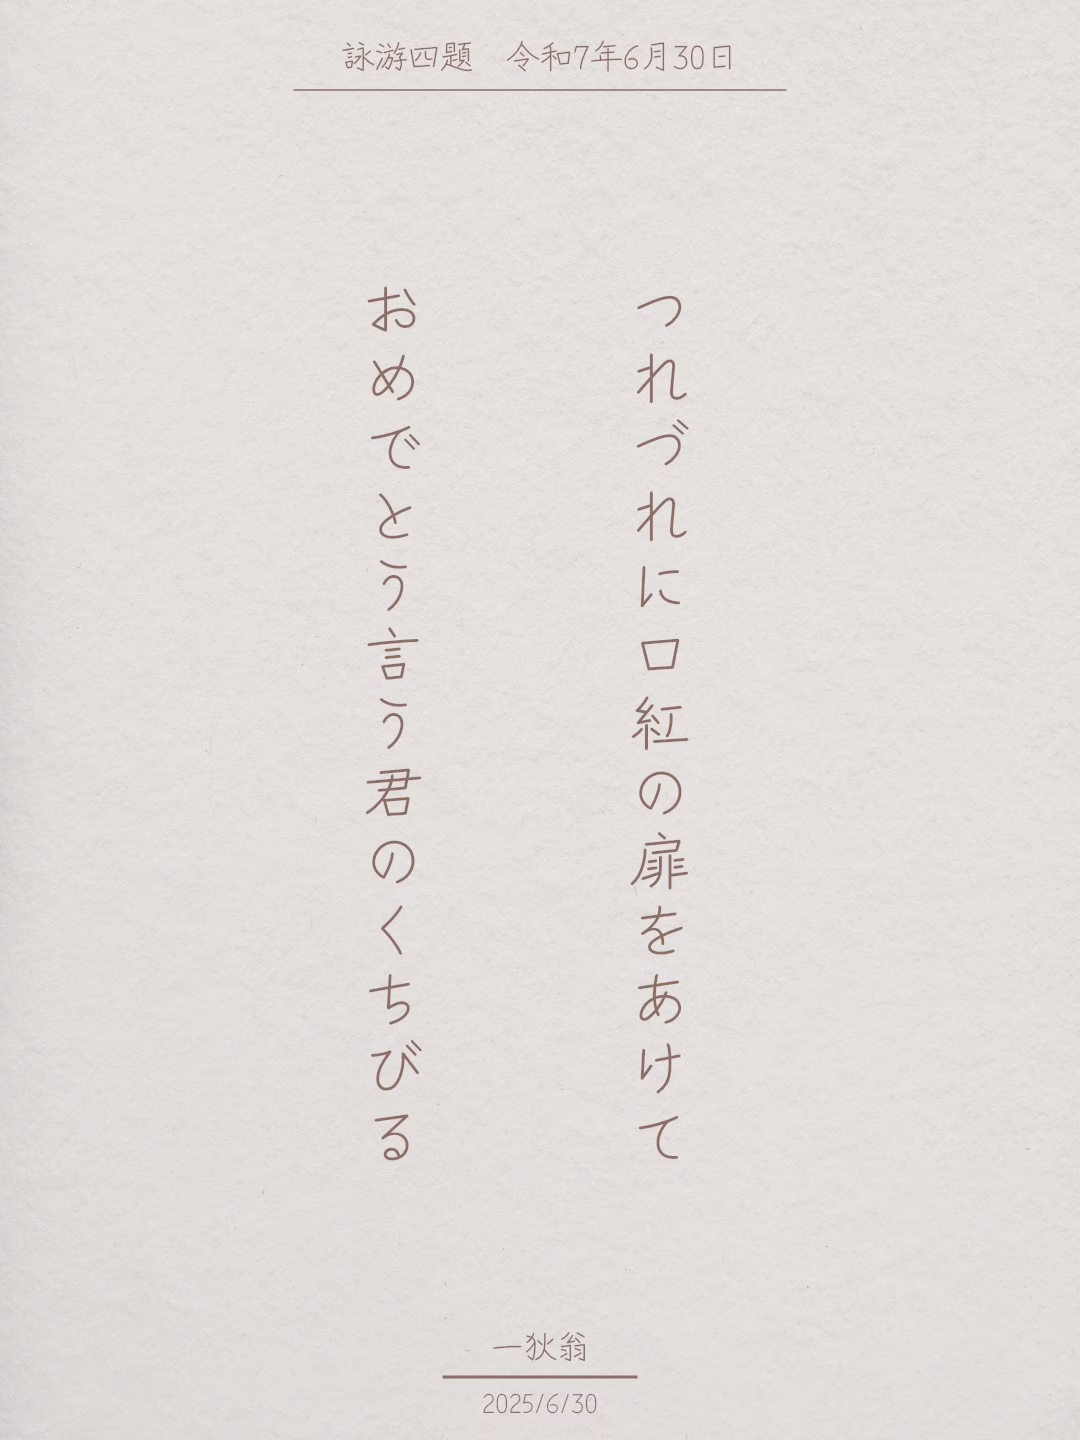 詠游四題　令和7年6月30日
つれづれに口紅の扉をあけて
おめでとう言う君のくちびる
一狄翁
2025/6/30